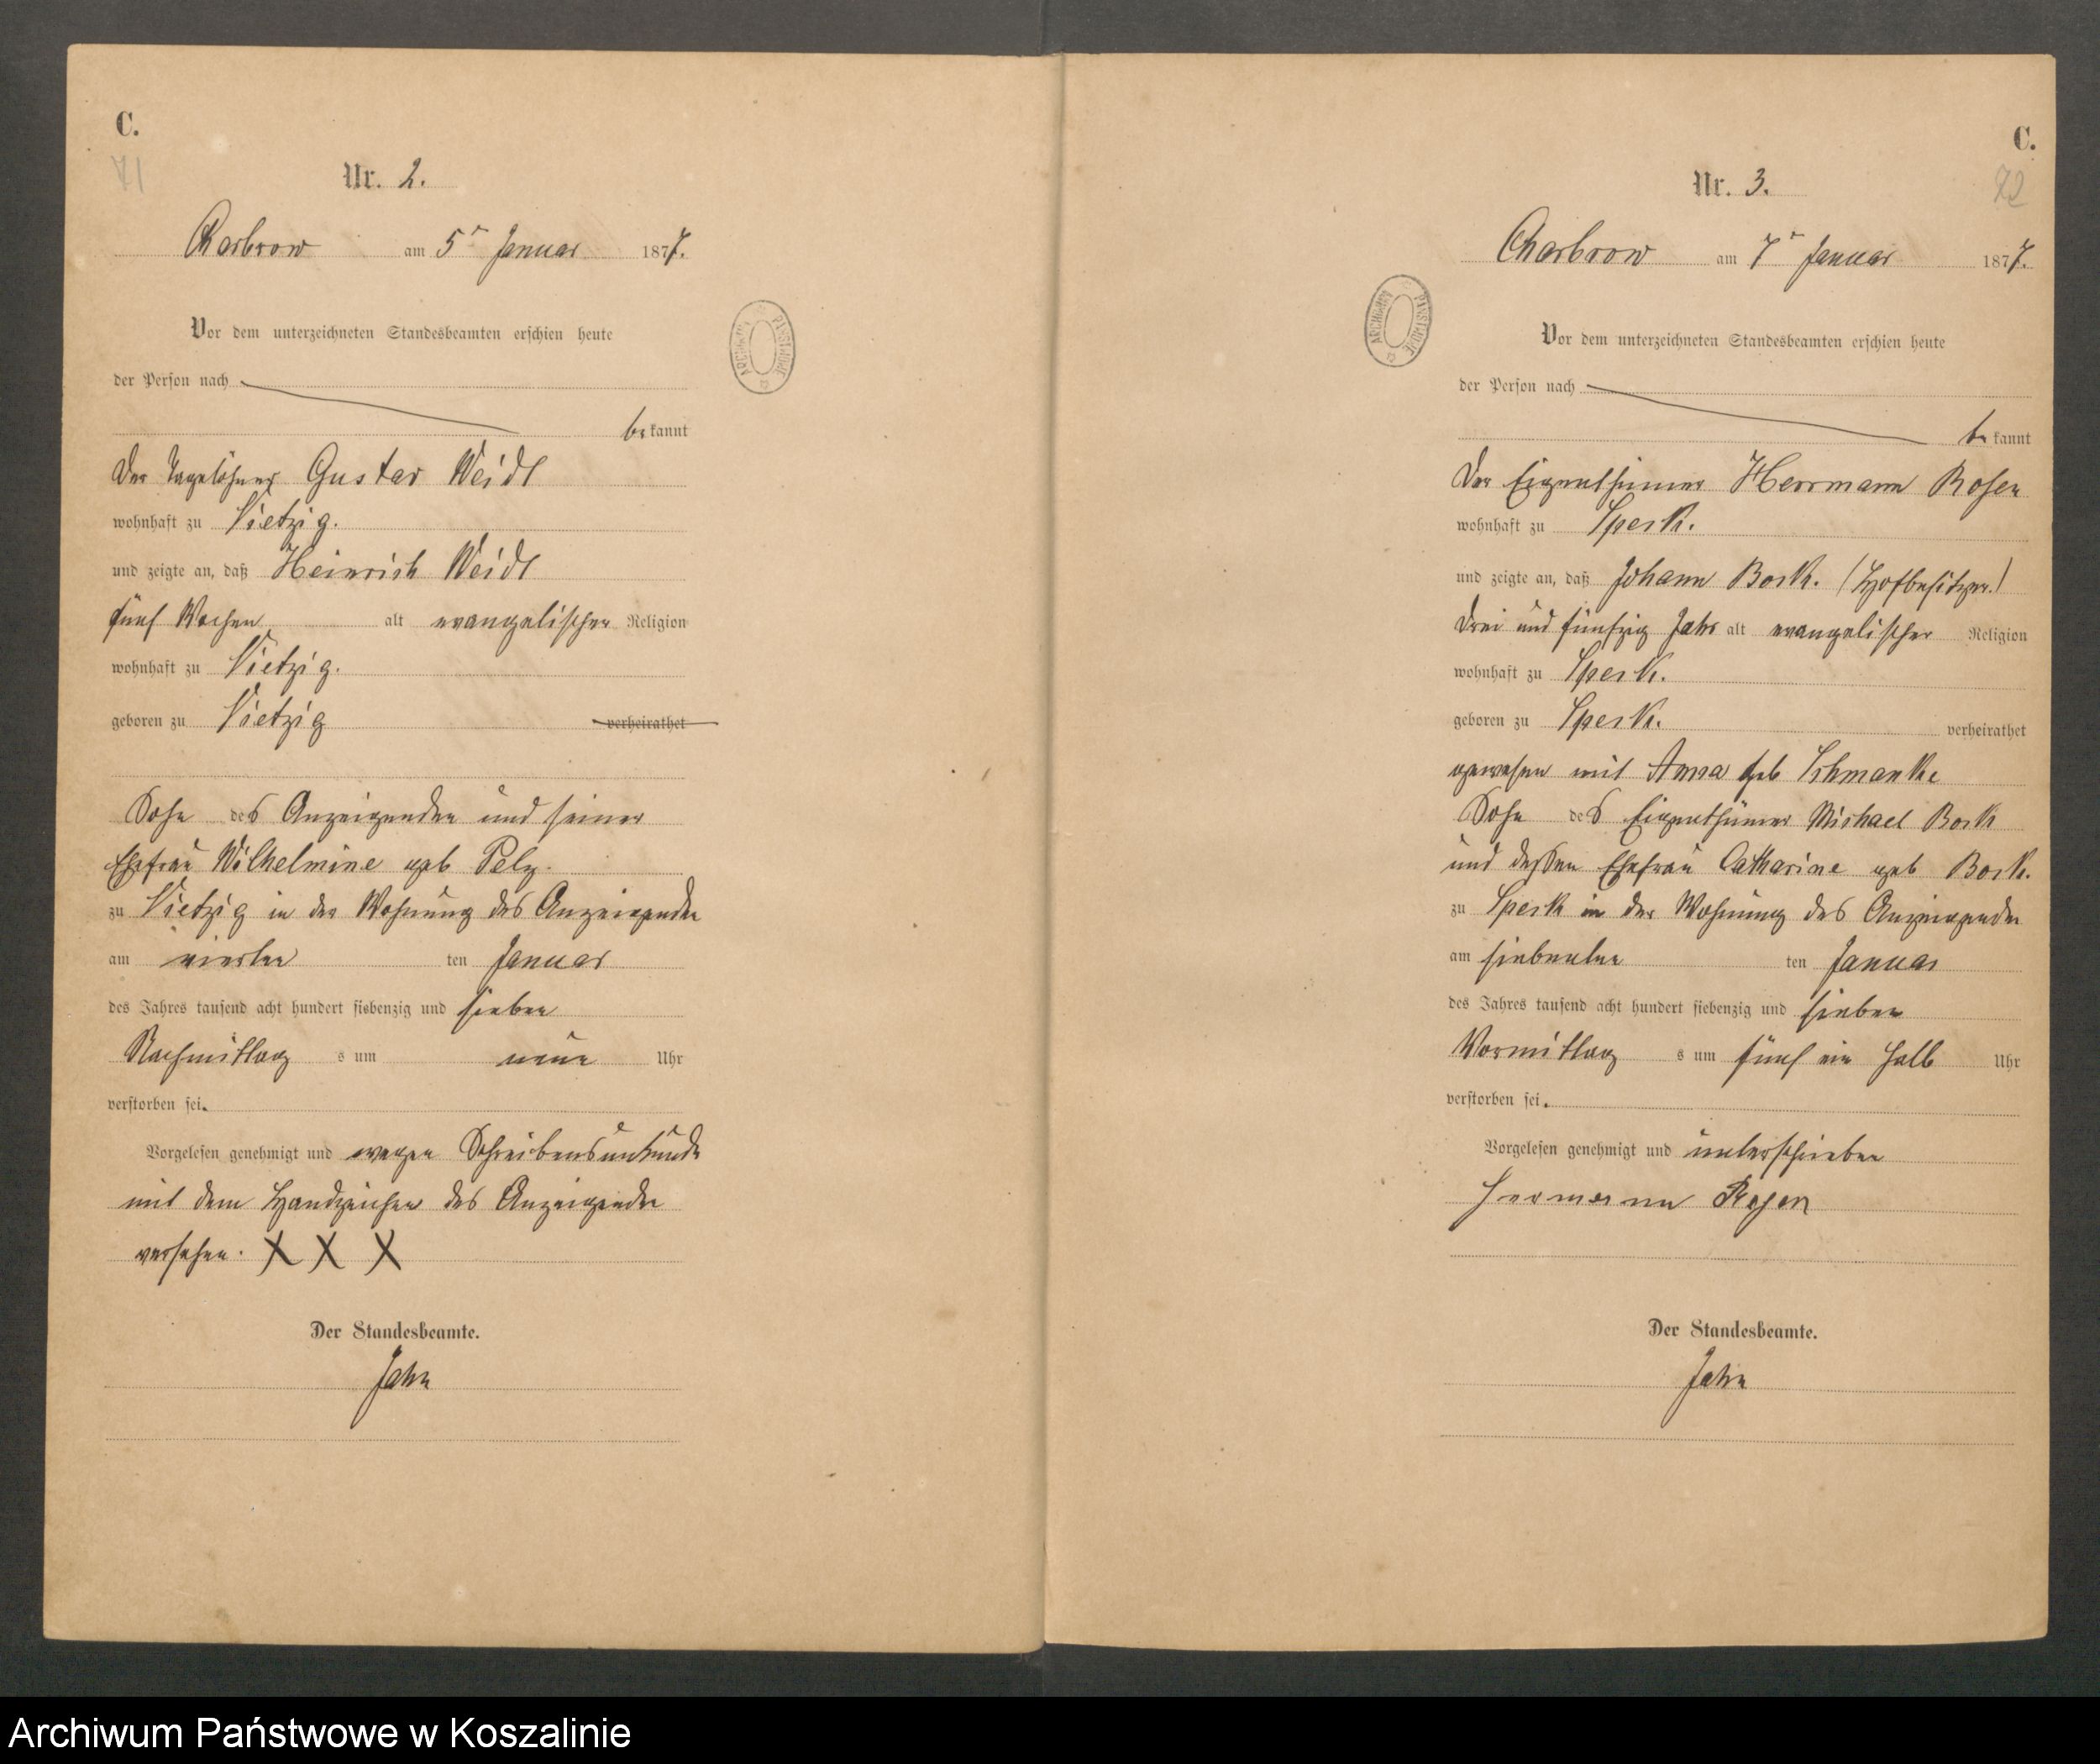 C.
71
Nr. 2.
Charbrow am 5t Januar 1877.
Vor dem unterzeichneten Standesbeamten erschien heute
der Person nach
bekannt
Der Tagelöhner Gustav Weidl
wohnhaft zu Vietzig.
und zeigte an, daß Heinrich Weidl
fünf Wochen alt evangelischer Religion
wohnhaft zu Vietzig.
geboren zu Vietzig verheirathet
Sohn des Anzeigenden und seiner
Ehefrau Wilhelmine geb Pelz.
zu Vietzig in der Wohnung des Anzeigenden
am vierten ten Januar
des Jahres tausend acht hundert siebenzig und sieben
Nachmittag s um neun Uhr
verstorben sei.
Vorgelesen genehmigt und wegen Schreibensunkunde
mit dem Handzeichen des Anzeigenden
versehen. X X X
Der Standesbeamte.
Jahn
C.
72
Nr. 3.
Charbrow am 7t Januar 1877.
Vor dem unterzeichneten Standesbeamten erschien heute
der Person nach
bekannt
Der Eigenthümer Herrmann Rosen
wohnhaft zu Speck.
und zeigte an, daß Johann Bock. (Hofbesitzer.)
drei und fünfzig Jahr alt evangelischer Religion
wohnhaft zu Speck.
geboren zu Speck. verheirathet
gewesen mit Anna geb Schmanke
Sohn des Eigenthümer Michael Bock
und dessen Ehefrau Catharine geb Bock.
zu Speck in der Wohnung des Anzeigenden
am siebenten ten Januar
des Jahres tausend acht hundert siebenzig und sieben
Vormittag s um fünf ein halb Uhr
verstorben sei.
Vorgelesen genehmigt und unterschrieben
Hermann Rosen
Der Standesbeamte.
Jahn
ARCHIWUM PAŃSTWOWE
ARCHIWUM PAŃSTWOWE
Archiwum Państwowe w Koszalinie